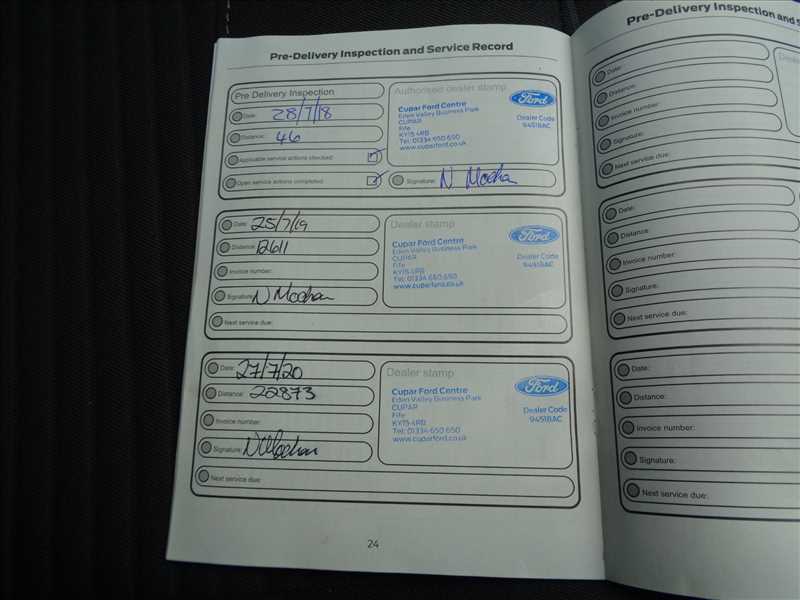 Pre-Delivery Inspection and Service Record
Pre Delivery Inspection
Date: 28/7/18
Distance: 46
Applicable service actions checked:
Open service actions completed:
Authorised dealer stamp
Cupar Ford Centre
Eden Valley Business Park
CUPAR
Fife
KY15 4RB
Tel: 01334 650 650
www.cuparford.co.uk
Ford
Dealer Code
9451BAC
Signature: N
Date: 25/7/19
Distance: 12611
Invoice number:
Signature: N
Next service due:
Dealer stamp
Cupar Ford Centre
Eden Valley Business Park
CUPAR
Fife
KY15 4RB
Tel: 01334 650 650
www.cuparford.co.uk
Ford
Dealer Code
9451BAC
Date: 27/7/20
Distance: 22873
Invoice number:
Signature: N
Next service due:
Dealer stamp
Cupar Ford Centre
Eden Valley Business Park
CUPAR
Fife
KY15 4RB
Tel: 01334 650 650
www.cuparford.co.uk
Ford
Dealer Code
9451BAC
24
Pre-Delivery Inspection and S
Date:
Distance:
Invoice number:
Signature:
Next service due:
Date:
Distance:
Invoice number:
Signature:
Next service due:
Date:
Distance:
Invoice number:
Signature:
Next service due: